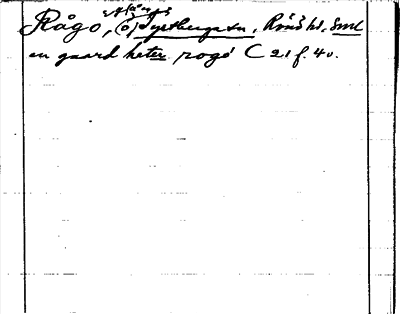 Rågo, (ö) Tystberga sn, Rönö hd. Sml
en gaard heter rogö C 21 f. 40.